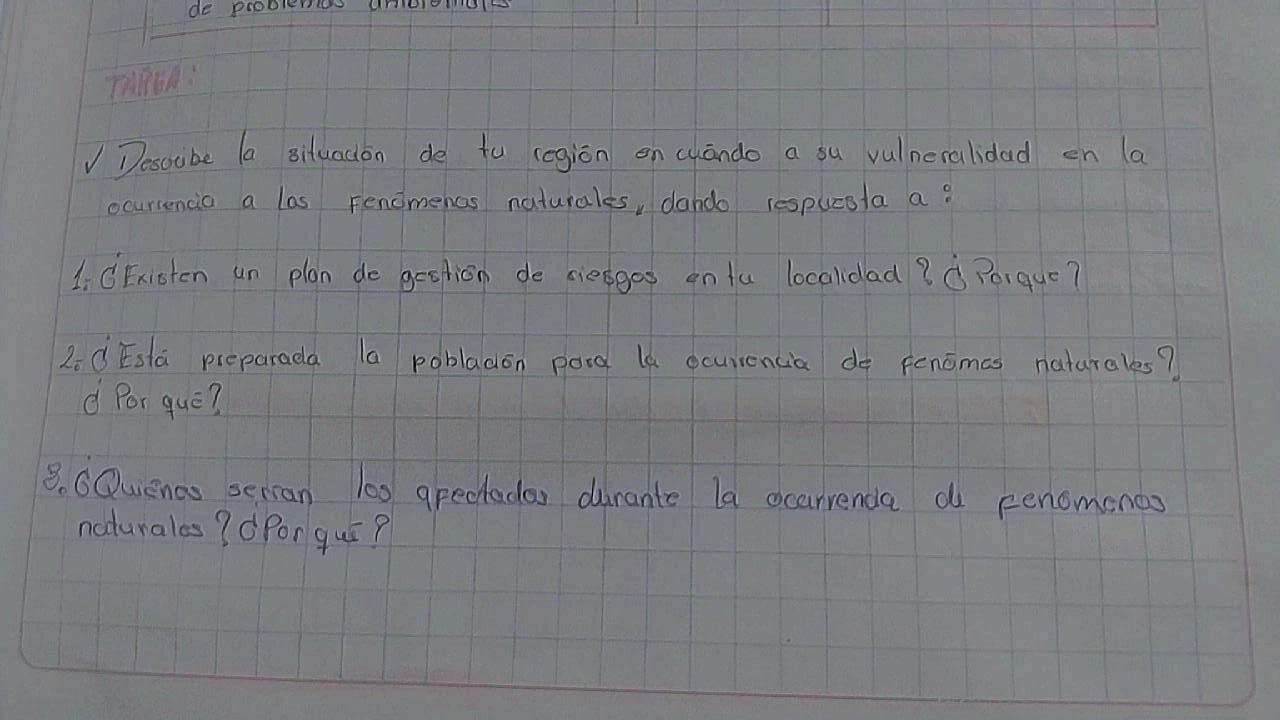 de problemas ambientales
TAREA:
✓ Describe la situación de tu región en cuándo a su vulneralidad en la
ocurrencia a los Fenómenos naturales, dando respuesta a:
1.- ¿Existen un plan de gestión de riesgos en tu localidad? ¿Porque?
2.- ¿Está preparada la población para la ocurrencia de fenómes naturales?
¿Por qué?
3. ¿Quiénes serían los afectados durante la ocurrencia de fenómenos
naturales? ¿Por qué?